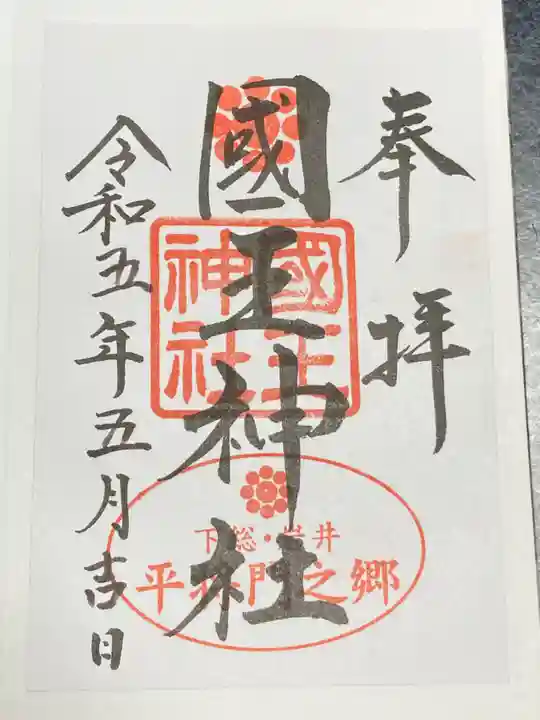 奉拝
國王神社
令和五年五月吉日
國王
神社
下総・岩井
平将門之郷